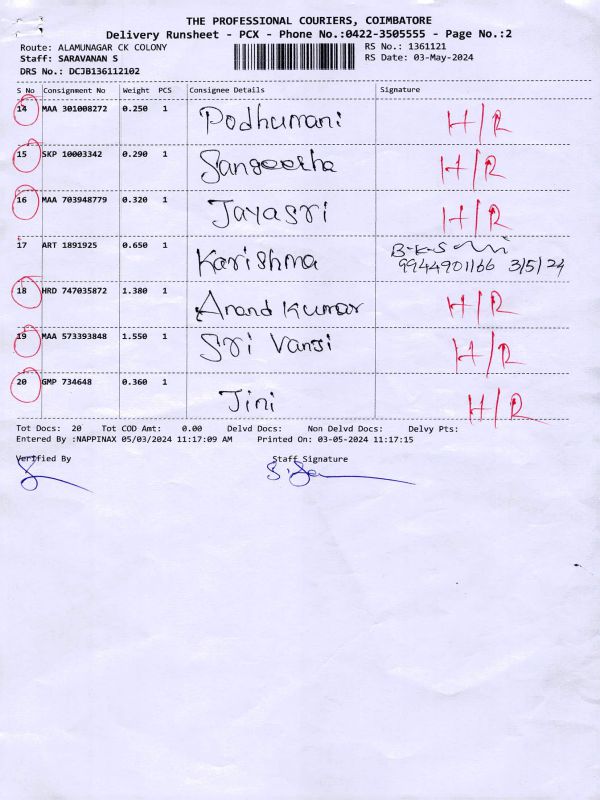 THE PROFESSIONAL COURIERS, COIMBATORE
Delivery Runsheet - PCX - Phone No.:0422-3505555 - Page No.:2
Route: ALAMUNAGAR CK COLONY
RS No.: 1361121
Staff: SARAVANAN S
RS Date: 03-May-2024
DRS No.: DCJB136112102
S No Consignment No Weight PCS Consignee Details Signature
14 MAA 301008272 0.250 1 Podhumani H/R
15 SKP 10003342 0.290 1 Sangeetha H/R
16 MAA 703948779 0.320 1 Jayasri H/R
17 ART 1891925 0.650 1 Karishma B-K-S
9944901166 3/5/24
18 HRD 747035872 1.380 1 Anand Kumar H/R
19 MAA 573393848 1.550 1 Sri Vansi H/R
20 GMP 734648 0.360 1 Jini H/R
Tot Docs: 20 Tot COD Amt: 0.00 Delvd Docs: Non Delvd Docs: Delvy Pts:
Entered By :NAPPINAX 05/03/2024 11:17:09 AM Printed On: 03-05-2024 11:17:15
Verified By Staff Signature